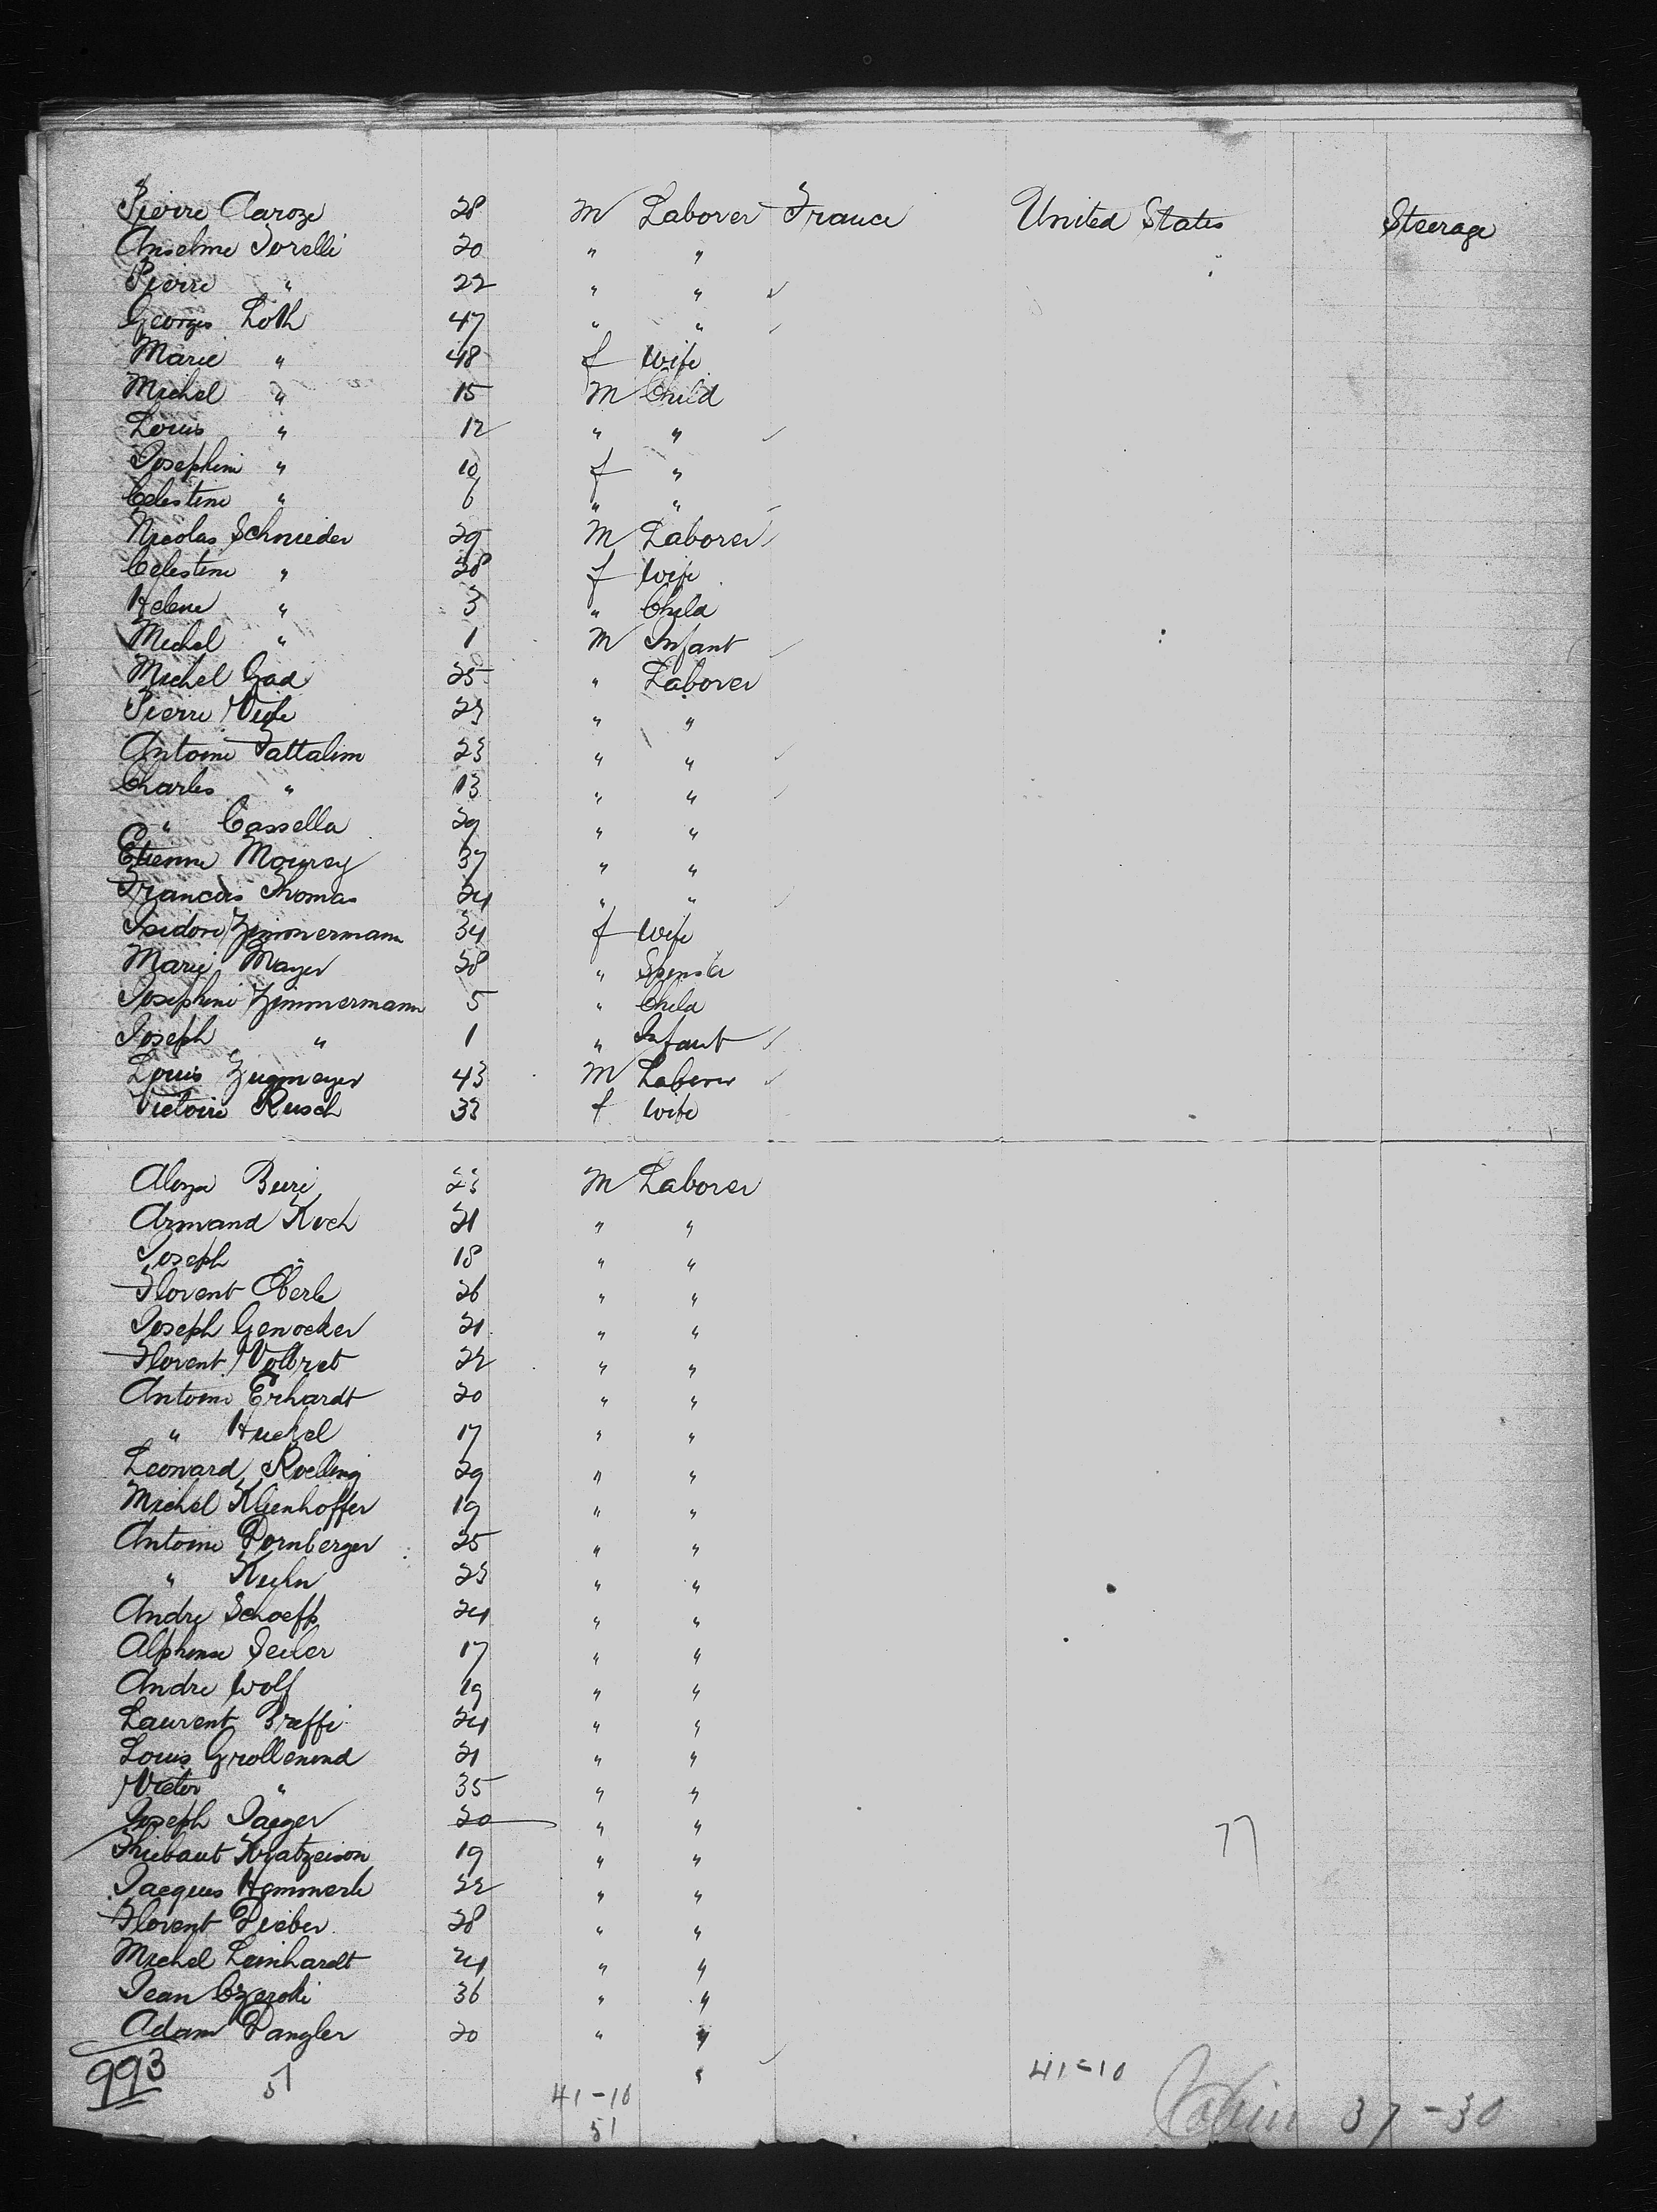 Pierre Caroze 28 m Laborer France United States Steerage
Anselme Torelli 20 " "
Pierre " 22 " "
Georges Loth 47 " "
Marie " 48 f Wife
Michel " 15 m Child
Louis " 12 " "
Josephine " 10 f "
Celestine " 6 " "
Nicolas Schnieder 29 m Laborer
Celestine " 28 f Wife
Helene " 3 " Child
Michel " 1 m Infant
Michel Gad 25 " Laborer
Pierre 23 " "
Antoine Fattalim 23 " "
Charles " 13 " "
" Cassella 29 " "
Etienne Mourey 37 " "
Francois Thomas 24 " "
Isidore Zimmermann 34 f Wife
Marie Mayer 28 " Spinster
Josephine Zimmermann 5 " Child
Joseph " 1 " Infant
Louis Zugmeyer 43 m Laborer
Victoire Rusch 33 f Wife
Aloyse 23 m Laborer
Armand Koch 21 " "
Joseph " 18 " "
Florent Eberle 26 " "
Joseph Genocker 21 " "
Florent Volbret 22 " "
Antoine Erhardt 20 " "
" Huckel 17 " "
Leonard Roelling 29 " "
Michel Klienhoffer 19 " "
Antoine Dornberger 25 " "
" Kuhn 23 " "
Andre Schoeff 24 " "
Alphonse Seiler 17 " "
Andre Wolf 19 " "
Laurent Breffi 24 " "
Louis Grollemund 21 " "
Victor " 35 " "
Joseph Jaeger 20 " "
Thiebaut Kratzeison 19 " "
77
Jacques Hemmerle 22 " "
Florent Dieber 28 " "
Michel Leinhardt 24 " "
Jean Czeroki 36 " "
Adam Dangler 20 " "
993 51 " 41=10
41-10 Cabin 37-30
51